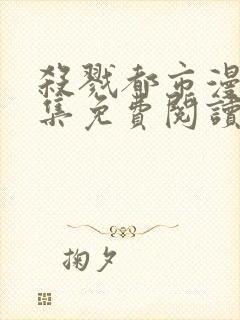 殺戮都市漫
集免費閱讀
掬夕